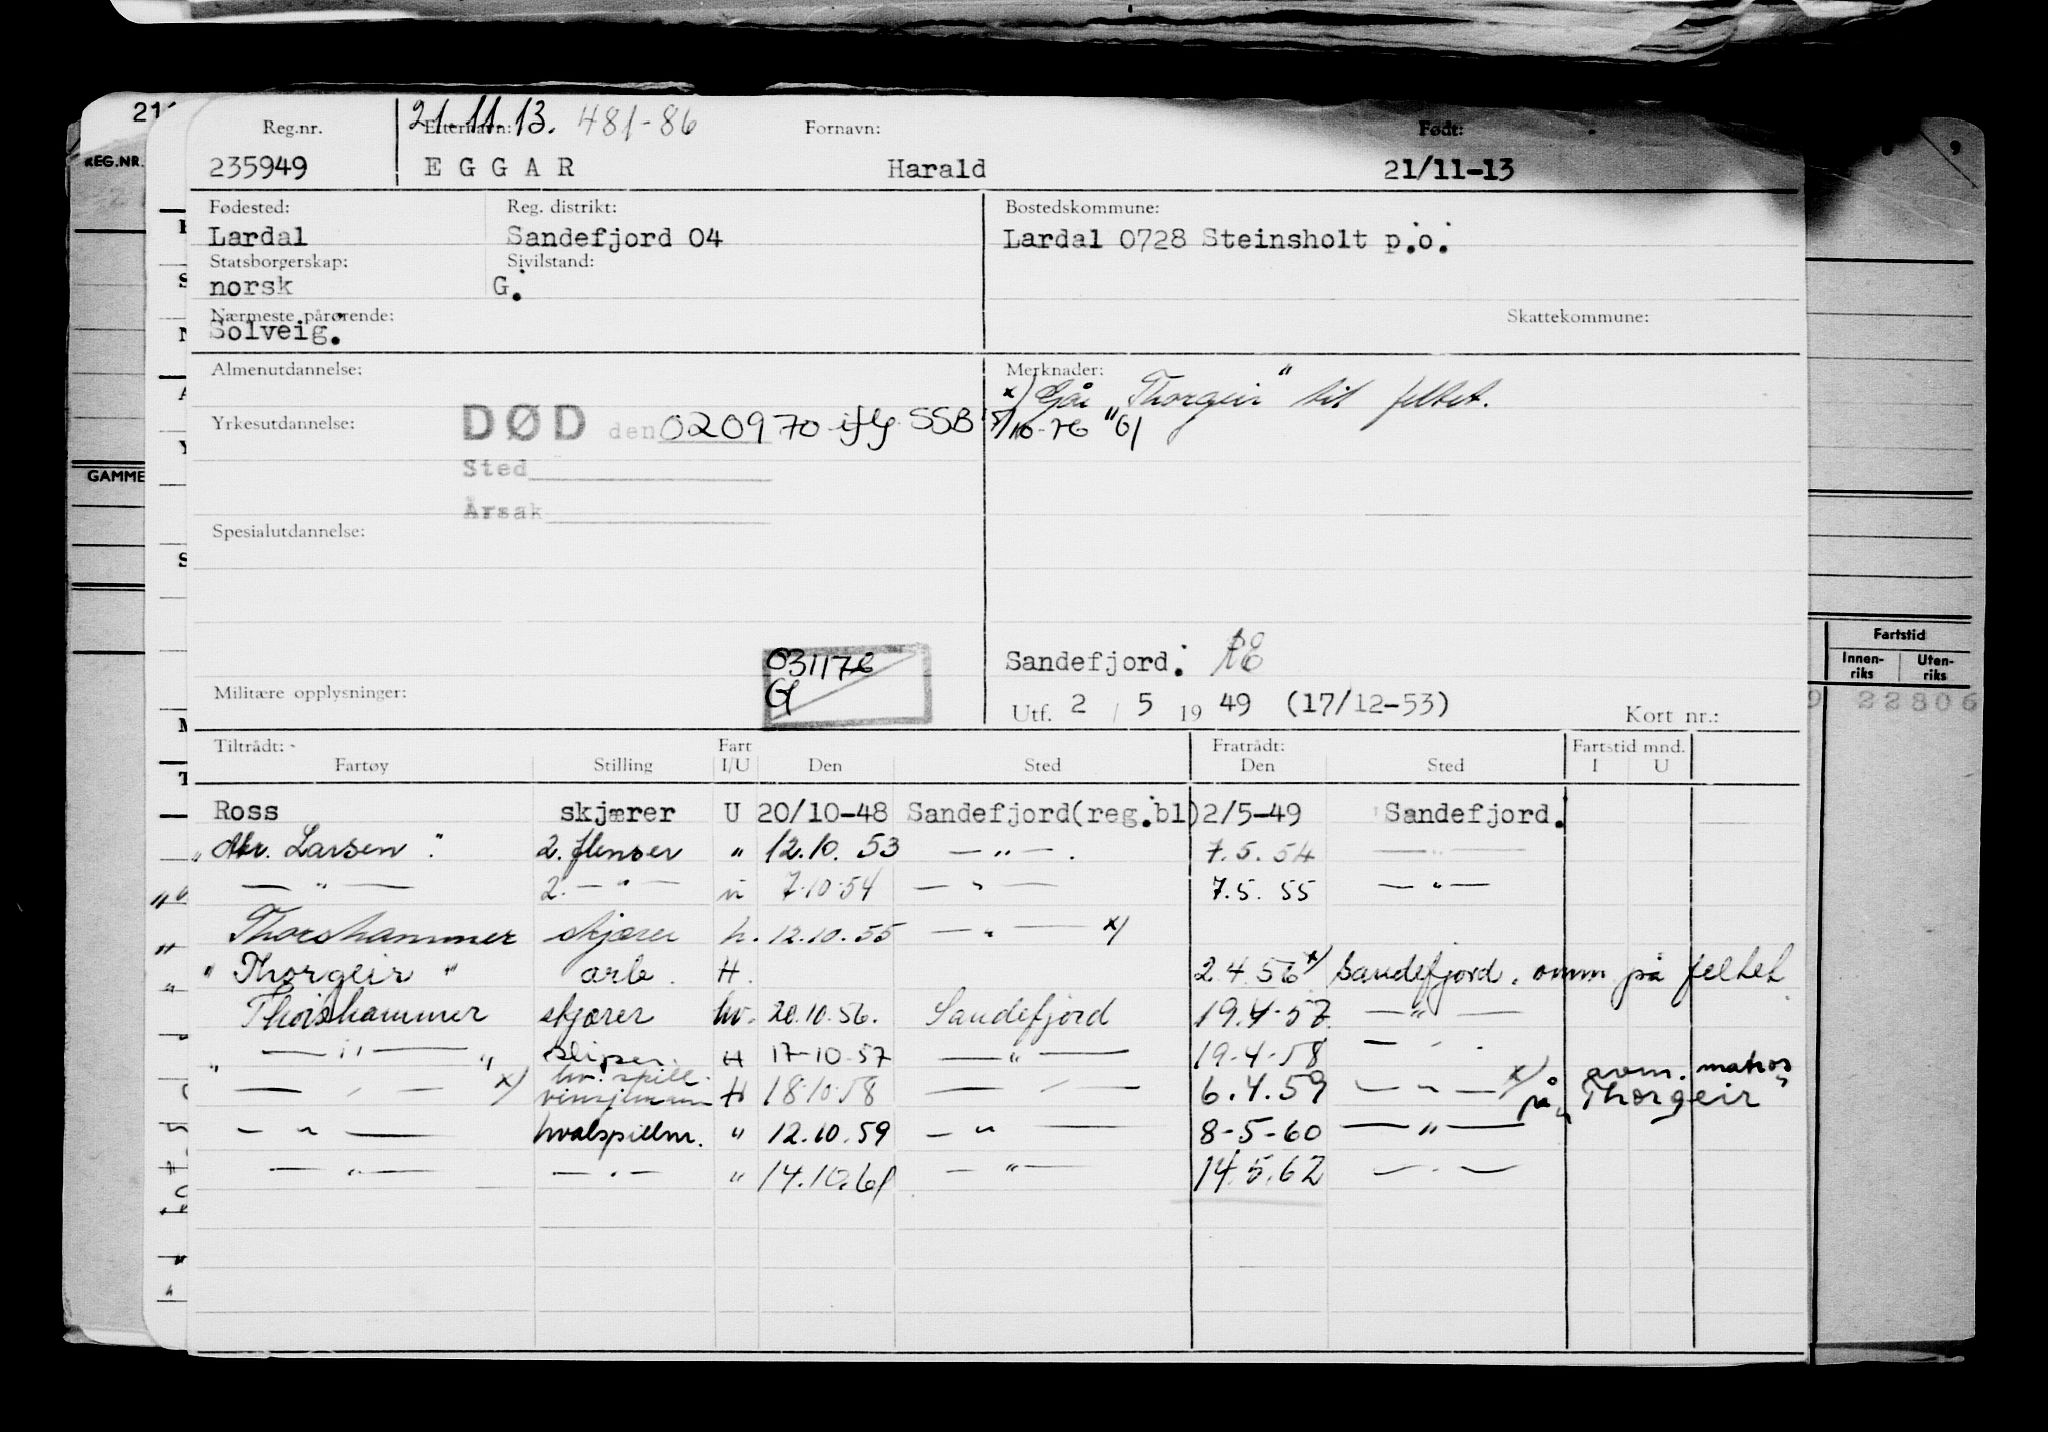 21.11.13. 481-86
Reg.nr. Etternavn: Fornavn: Født:
235949 EGGAR Harald 21/11-13
Fødested: Reg. distrikt: Bostedskommune:
Lardal Sandefjord 04 Lardal 0728 Steinsholt p.o.
Statsborgerskap: Sivilstand:
norsk G.
Nærmeste pårørende: Skattekommune:
Solveig.
Almenutdannelse: Merknader:
x) Går "Thorgeir" til feltet.
Yrkesutdannelse: DØD den 020970 iflg SSB
Sted
Årsak
Spesialutdannelse:
031176
G
Sandefjord.
Militære opplysninger: Utf. 2 / 5 19 49 (17/12-53) Kort nr.:
Tiltrådt: Fart Fratrådt: Fartstid mnd.
Fartøy Stilling I/U Den Sted Den Sted I U
Ross skjærer U 20/10-48 Sandefjord(reg.bl) 2/5-49 Sandefjord.
Larsen 2. flenser " 12.10. 53 — " — . 7.5.54 — " —
— " — 2. — " — 7.10.54 — " — 7.5. 55 — " —
Thorshammer skjærer h. 12.10.55 — " — x)
" Thorgeir " arb. H. 2.4.56 x) Sandefjord. omm på feltet
Thorshammer skjærer hv. 20.10.56. Sandefjord 19.4.57 — " —
" — " — " sliper. H 17-10-57 — " — 19-4-58 — " —
— " — x) hv. spill. H 18.10.58 — " — 6.4.59 — " — x) avm. matros
på "Thorgeir"
— " — hvalspillm. " 12.10.59 — " — 8-5-60 — " —
— " — — " — " 14.10.61 — " — 14.5.62 — " —
REG.NR.
GAMME
Fartstid
Innen-
riks
Uten-
riks
22806